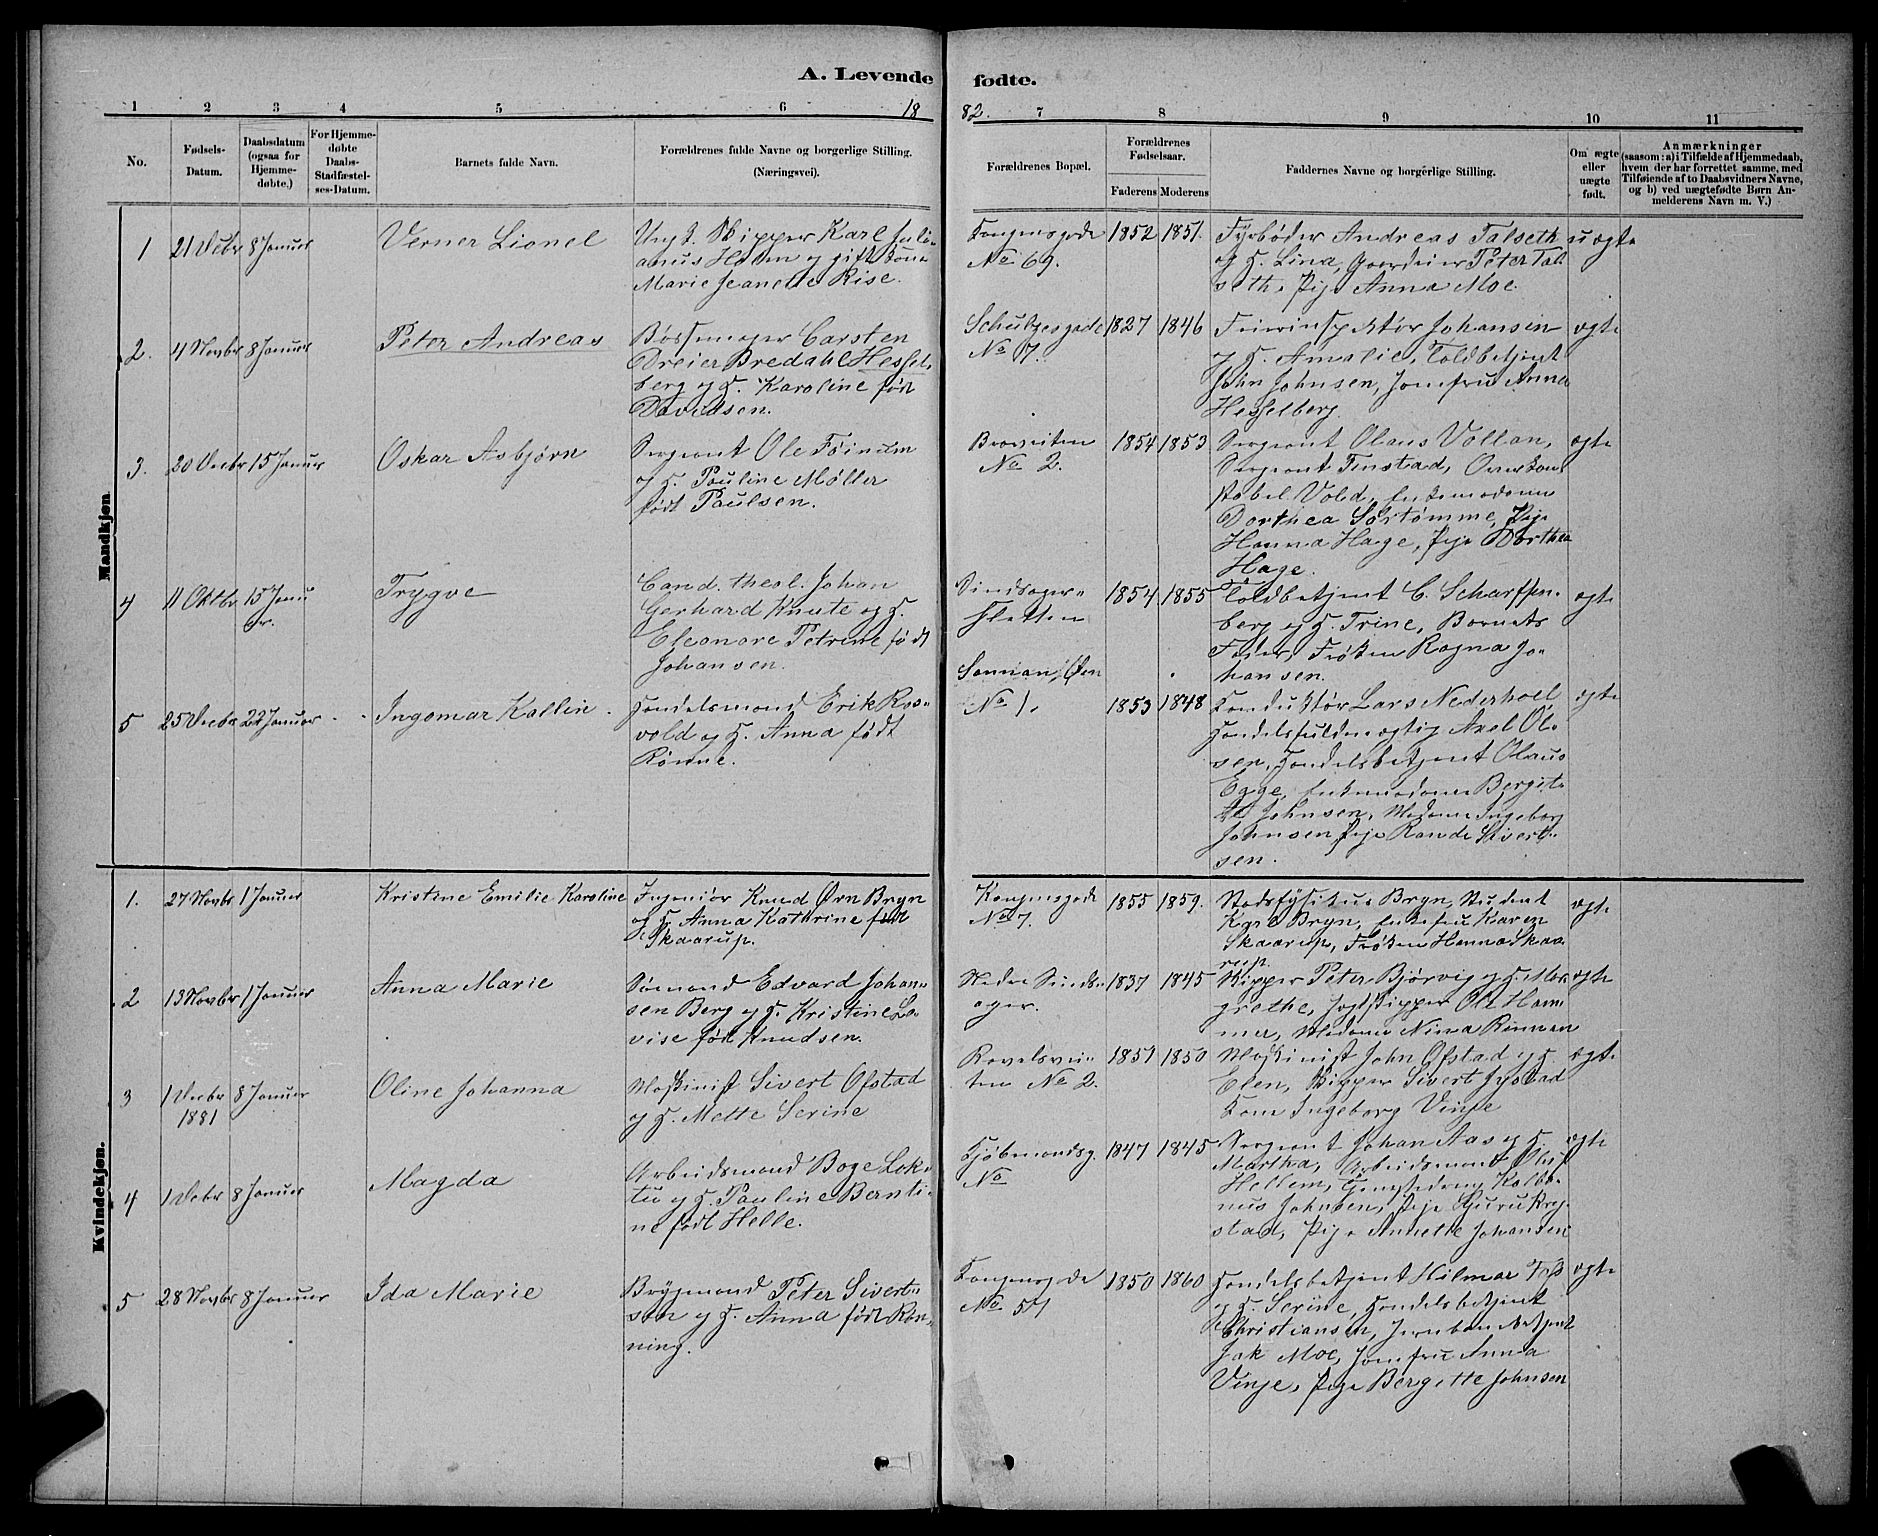 A. Levende fødte.
1 2 3 4 5 6 1882. 7 8 9 10 11
No.
Fødsels-
Datum.
Daabsdatum
(ogsaa for
Hjemme-
døbte.)
For Hjemme-
døbte
Daabs-
Stadfæstel-
ses-Datum.
Barnets fulde Navn.
Forældrenes fulde Navne og borgerlige Stilling.
(Næringsvei).
Forældrenes Bopæl.
Forældrenes
Fødselsaar.
Faderens Moderens
Faddernes Navne og borgerlige Stilling.
Om ægte
eller
uægte
født.
Anmærkninger
(saasom: a) i Tilfælde af Hjemmedaab,
hvem der har forrettet samme, med
Tilføiende af to Daabsvidners Navne,
og b) ved uægtefødte Børn An-
melderens Navn m. V.)
Mandkjøn
1 21 Decbr 8 Januar Verner Lionel
Ungk. Skipper Karl Juli-
anus Holm og gift Kone
Marie Jeanette Rise.
Kongensgade
No 69.
1852 1851.
Fyrbøder Andreas Talseth
og H. Lina, Gaardeier Peter Tal
seth, Pige Anna Moe.
uægte
2. 4 Novbr 8 Januar Peter Andreas
Bøssemager Carsten
Dreier Bredahl Hessel-
berg og H. Karoline født
Davidsen.
Schultzesgade
No 7.
1827 1846
Feierinspektør Johansen
og H. Amalie, Toldbetjent
John Johnsen, Jomfru Anna
Hesselberg
ægte
3. 20 Decbr 15 Januar Oskar Asbjørn
Sergeant Ole Føinum
og H. Pauline Møller
født Paulsen.
No 2.
1854 1853
Sergeant Olaus Vollan,
Sergeant Finstad, Overkon
stabel Vold, Enkemadame
Dorthea Sostømme, Pige
Hanna Hage, Pige Dorthea
Hage.
ægte
4 11 Oktbr 15 Janu
ar.
Trygve
Cand. theol. Johan
Gerhard Knute og H.
Eleonore Petrine født
Johansen.
Sindsager-
sletten
1854 1855
Toldbetjent C. Scharffen-
berg og H. Trine, Barnets
Fader, Frøken Ragna Jo-
hansen.
ægte
5 25 Decbr 22 Januar - - Ingomar Kallin -
Handelsmand Erik Ros-
vold og H. Anna født
Rønne.
No 1.
1853 1848
Konduktør Lars Nederhoel,
Handelsfuldmægtig Axel Ol-
sen, Handelsbetjent Olaus
Egge, Enkemadame Bergit-
te Johnsen, Madame Ingeborg
Johnsen, Pige Randi Sivert-
sen.
ægte
Kvindekjøn.
1. 27 Novbr 1 Januar Kristine Emilie Karoline
Ingeniør Knud Ørn Bryn
og H. Anna Kathrine født
Skaarup.
Kongensgade
No 7.
1855 1859.
Stadsfysikus Bryn, Student
Karl Bryn, Enkefru Karen
Skaarup, Frøken Hanna Skaa-
rup.
ægte
2 13 Novbr 1 Januar Anna Marie
Sømand Edvard Johan-
sen Berg og H. Kristine Lo-
vise født Knudsen.
Nedre Sinds-
ager.
1837 1845
Skipper Peter Bjørvig og H. Mar-
grethe, Jagtskipper Ole Ham
mer, Madame Nina Rønnan
ægte
3 1 Decbr 8 Januar
1881
Oline Johanna
Maskinist Sivert Ofstad
og H. Mette Serine
Ravelsvei-
ten No 2.
1851 1850
Maskinist John Ofstad og H.
Elen, Skipper Sivert Fjelstad
Kone Ingeborg Vinje
ægte
4 1 Decbr 8 Januar Magda
Arbeidsmand Boge Lok-
tu og H. Pauline Bernti-
ne født Helle.
Kjøbmandsg.
No
1847 1845
Sergeant Johan Aas og H.
Martha, Arbeidsmand
Hellem, Kolbe-
nus Johnsen, Pige Guru
stad, Pige Annette Johansen
ægte
5 28 Novbr 8 Januar Ida Marie
Brygmand Peter Sivert-
sen og H. Anna født Røn-
ning.
Kongensgade
No 57
1850 1860
Handelsbetjent Hilmar
og H. Serine, Handelsbetjent
Christiansen, Jernbanebetjent
Jak Moe, Jomfru Anna
Vinje, Pige Bergitte Johnsen
ægte